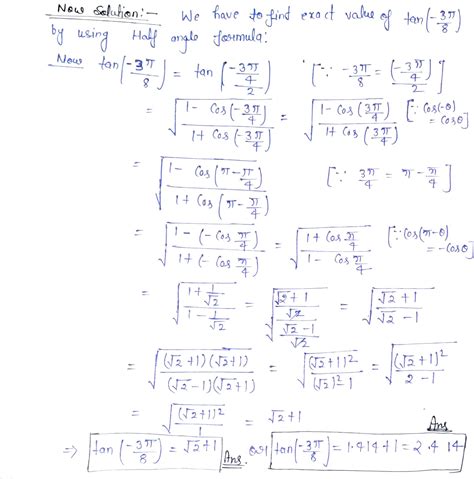 Now Solution:- We have to find exact value of tan(-3π/8)
by using Half angle formula:
Now tan(-3π/8) = tan((-3π/4)/2) [∵ -3π/8 = (-3π/4)/2]
= √((1 - Cos(-3π/4))/(1 + Cos(-3π/4))) = √((1 - Cos(3π/4))/(1 + Cos(3π/4))) [∵ Cos(-θ) = Cosθ]
= √((1 - Cos(π - π/4))/(1 + Cos(π - π/4))) [∵ 3π/4 = π - π/4]
= √((1 - (-Cos π/4))/(1 + (-Cos π/4))) = √((1 + Cos π/4)/(1 - Cos π/4)) [∵ Cos(π-θ) = -Cosθ]
= √((1 + 1/√2)/(1 - 1/√2)) = √(((√2 + 1)/√2)/((√2 - 1)/√2)) = √((√2 + 1)/(√2 - 1))
= √(((√2 + 1)(√2 + 1))/((√2 - 1)(√2 + 1))) = √((√2 + 1)²/((√2)² - 1)) = √((√2 + 1)²/(2 - 1))
= √((√2 + 1)²/1) = √2 + 1
Ans
⇒ tan(-3π/8) = √2 + 1 Ans. or tan(-3π/8) = 1.414 + 1 = 2.414